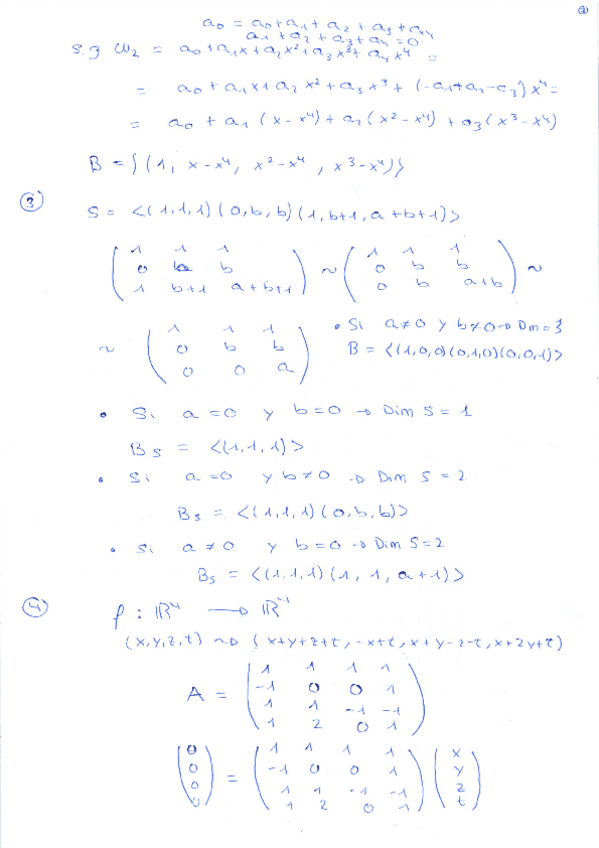 ②
a₀ = a₀ + a₁ + a₂ + a₃ + a₄
a₁ + a₂ + a₃ + a₄ = 0
s.g ω₂ = a₀ + a₁x + a₂x² + a₃x³ + a₄x⁴ =
= a₀ + a₁x + a₂x² + a₃x³ + (-a₁+a₂-a₃)x⁴ =
= a₀ + a₁(x-x⁴) + a₂(x²-x⁴) + a₃(x³-x⁴)
B = {(1, x-x⁴, x²-x⁴, x³-x⁴)}
③
S = <(1,1,1)(0,b,b)(1,b+1,a+b+1)>
( 1 1 1 ) ~ ( 1 1 1 ) ~
( 0 b b ) ( 0 b b )
( 1 b+1 a+b+1 ) ( 0 b a+b )
~ ( 1 1 1 ) • Si a≠0 y b≠0 → Dim=3
( 0 b b ) B = <(1,0,0)(0,1,0)(0,0,1)>
( 0 0 a )
• Si a=0 y b=0 → Dim S = 1
B_S = <(1,1,1)>
• Si a=0 y b≠0 → Dim S = 2
B_S = <(1,1,1)(0,b,b)>
• Si a≠0 y b=0 → Dim S=2
B_S = <(1,1,1)(1,1,a+1)>
④
f : ℝ⁴ → ℝ⁴
(x,y,z,t) ~> (x+y+z+t, -x+t, x+y-z-t, x+2y+t)
A = ( 1 1 1 1 )
( -1 0 0 1 )
( 1 1 -1 -1 )
( 1 2 0 1 )
( 0 ) = ( 1 1 1 1 ) ( x )
( 0 ) ( -1 0 0 1 ) ( y )
( 0 ) ( 1 1 -1 -1 ) ( z )
( 0 ) ( 1 2 0 1 ) ( t )